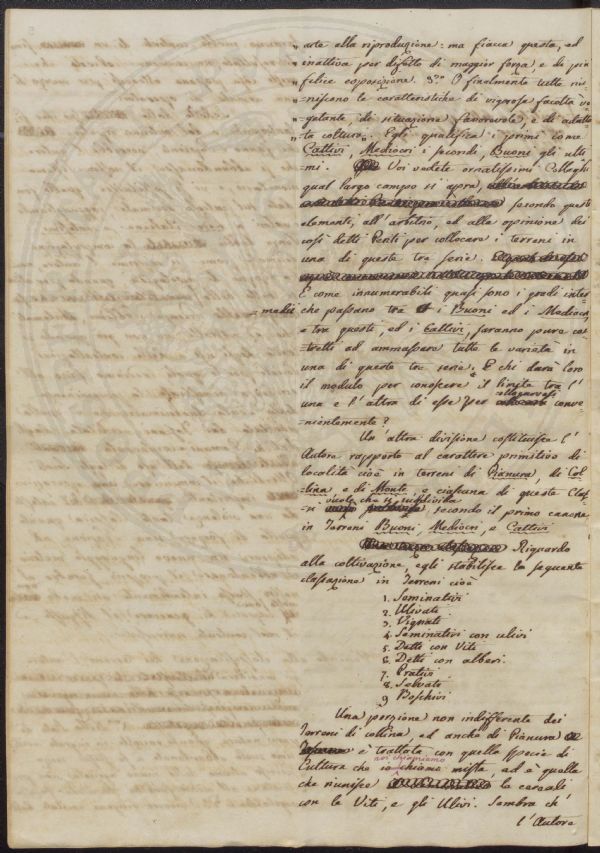 „ arte alla riproduzione: ma fiacca questa, ed
„ inattiva per difetto di maggior forza, e di più
„ felice esposizione. 3.° O finalmente tutte riu=
=niscono le caratteristiche di vignosa facoltà ve
=getante, di situazione favorevole, e di adatta
=ta coltura". Egli qualifica i primi come
Cattivi, Mediocri i secondi, Buoni gli ulti
mi. Voi vedete ornatissimi Colleghi
qual largo campo si apra, secondo questi
elementi, all'arbitrio, ed alla opinione dei
così detti Periti per collocare i terreni in
una di queste tre serie.
E come innumerabili quasi sono i gradi inter
=medii che passano tra i Buoni ed i Mediocri,
e tra questi, ed i Cattivi, saranno pure co=
=stretti ad ammassare tutte le varietà in
una di queste tre serie. E chi darà loro
il modulo per conoscere il limite tra l'
una e l'altra di esse per allogarvesi conve
=nientemente?
Un'altra divisione costituisce l'
Autore rapporto al carattere primitivo di
località cioè in terreni di Pianura, di Col
=lina e di Monte, e ciascuna di queste Clas
=si vuole che si suddivida secondo il primo canone
in Terreni Buoni, Mediocri, e Cattivi
Riguardo
alla coltivazione, egli stabilisce la seguente
classazione in Terreni cioè
1. Seminativi
2. Ulivati
3. Vignati
4. Seminativi con ulivi
5. Detti con Viti
6. Detti con alberi.
7. Prativi
8. Selvati
9 Boschivi
Una porzione non indifferente dei
Terreni di collina, ed anche di Pianura
è trattata con quella specie di
Cultura che noi chiamiamo mista, ed è quella
che riunisce le cereali
con le Viti, e gli Ulivi. Sembra ch'
l'Autore